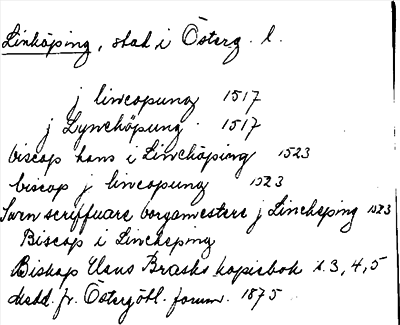 Linköping, stad i Österg. l.
j lincopung 1517
j Lynchöpung 1517
biscop hans i Linchöping 1523
biscop j lincopung 1523
Swen scriffuare borgamestere j Lincheping 1523
Biscop i Lincheping
Biskop Hans Brasks kopiebok s. 3, 4, 5
Medd. fr. Östergötl. fornm. 1875